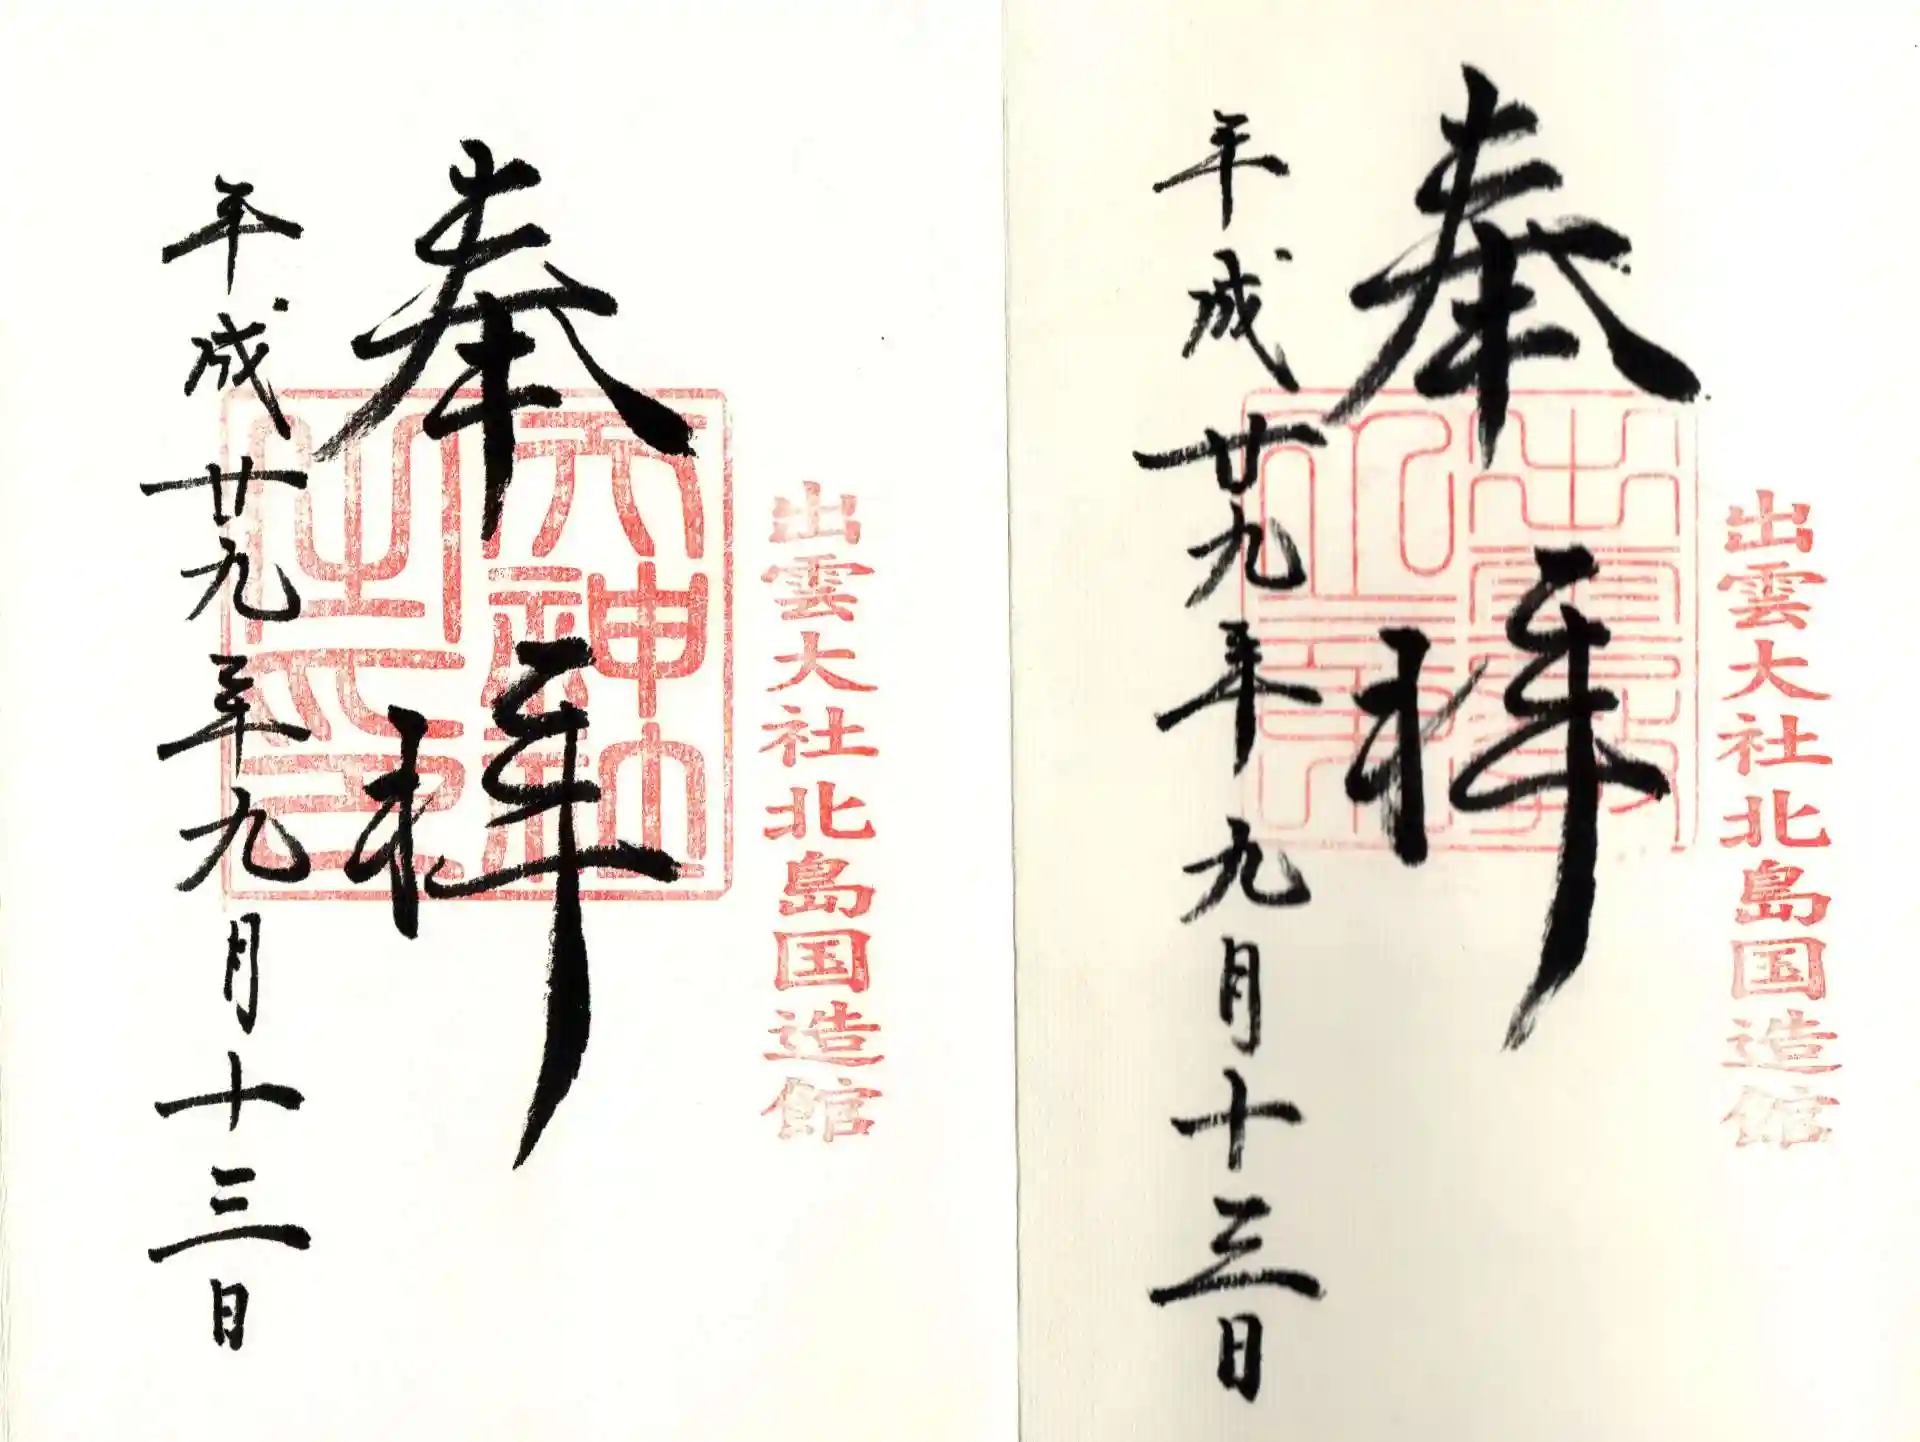 出雲大社北島国造館
奉拝
平成廿九年九月十三日
出雲大社北島国造館
奉拝
天神社之印
平成廿九年九月十三日